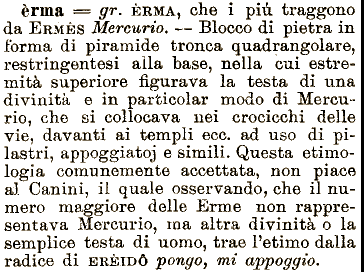 èrma = gr. ÈRMA, che i più traggono
da ERMÈS Mercurio. — Blocco di pietra in
forma di piramide tronca quadrangolare,
restringentesi alla base, nella cui estre-
mità superiore figurava la testa di una
divinità e in particolar modo di Mercu-
rio, che si collocava nei crocicchi delle
vie, davanti ai templi ecc. ad uso di pi-
lastri, appoggiatoj e simili. Questa etimo-
logia comunemente accettata, non piace
al Canini, il quale osservando, che il nu-
mero maggiore delle Erme non rappre-
sentava Mercurio, ma altra divinità o la
semplice testa di uomo, trae l'etimo dalla
radice di ERÈIDÔ pongo, mi appoggio.